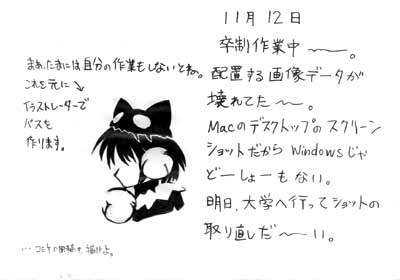 11月12日
卒制作業中〜〜。
配置する画像データが
壊れてた〜〜。
Macのデスクトップのスクリーン
ショットだから Windowsじゃ
どーしょーもない。
明日、大学へ行ってショットの
取り直しだ〜〜い。
まぁ、たまには自分の作業もしないとね。
これを元に↘
イラストレーターで
パスを
作ります。
…コミケの原稿も描けよ。